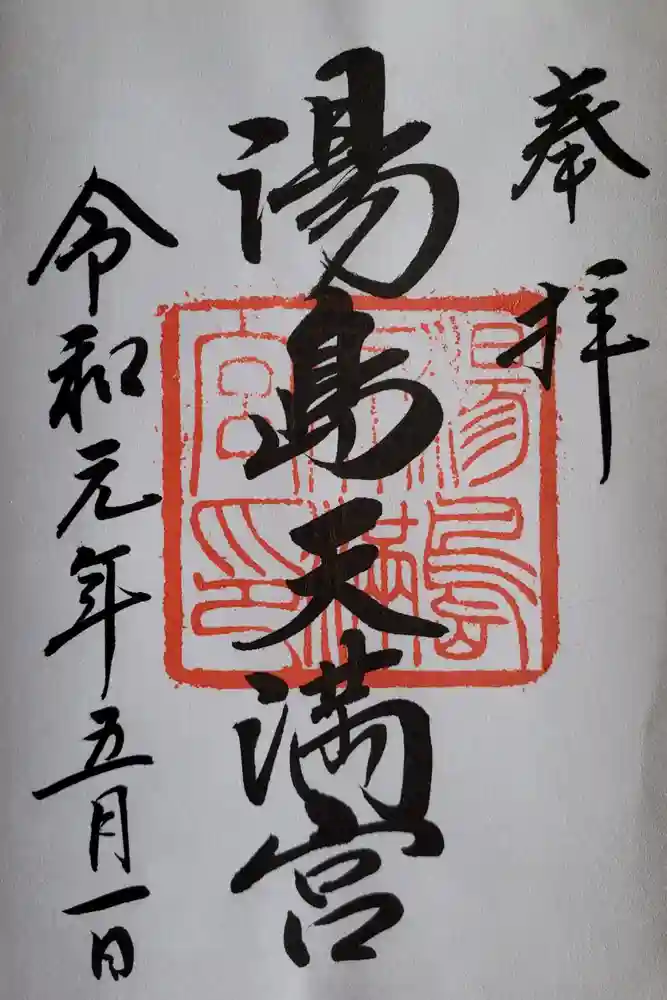 奉拝
湯島天満宮
湯島
天満
宮印
令和元年五月一日